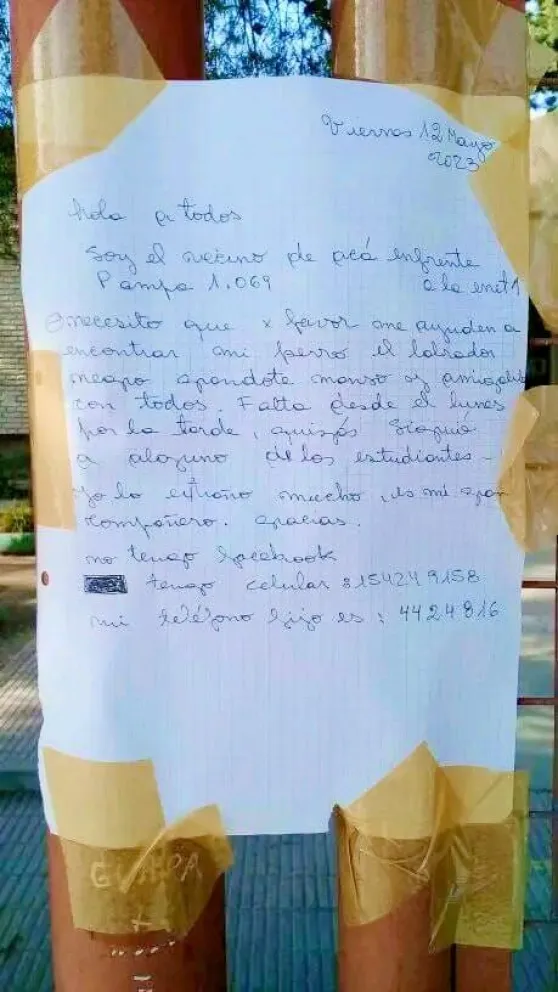 Viernes 12 Mayo
2023
hola a todos
Soy el vecino de acá enfrente
Pampa 1.069 a la enet 1
necesito que x favor me ayuden a
encontrar mi perro el labrador
negro grandote manso y amigable
con todos. Falta desde el lunes
por la tarde, quizás siguió
a alguno de los estudiantes -
yo lo extraño mucho, es mi gran
compañero. gracias.
no tengo facebook
tengo celular: 154249158
mi teléfono fijo es: 4424816